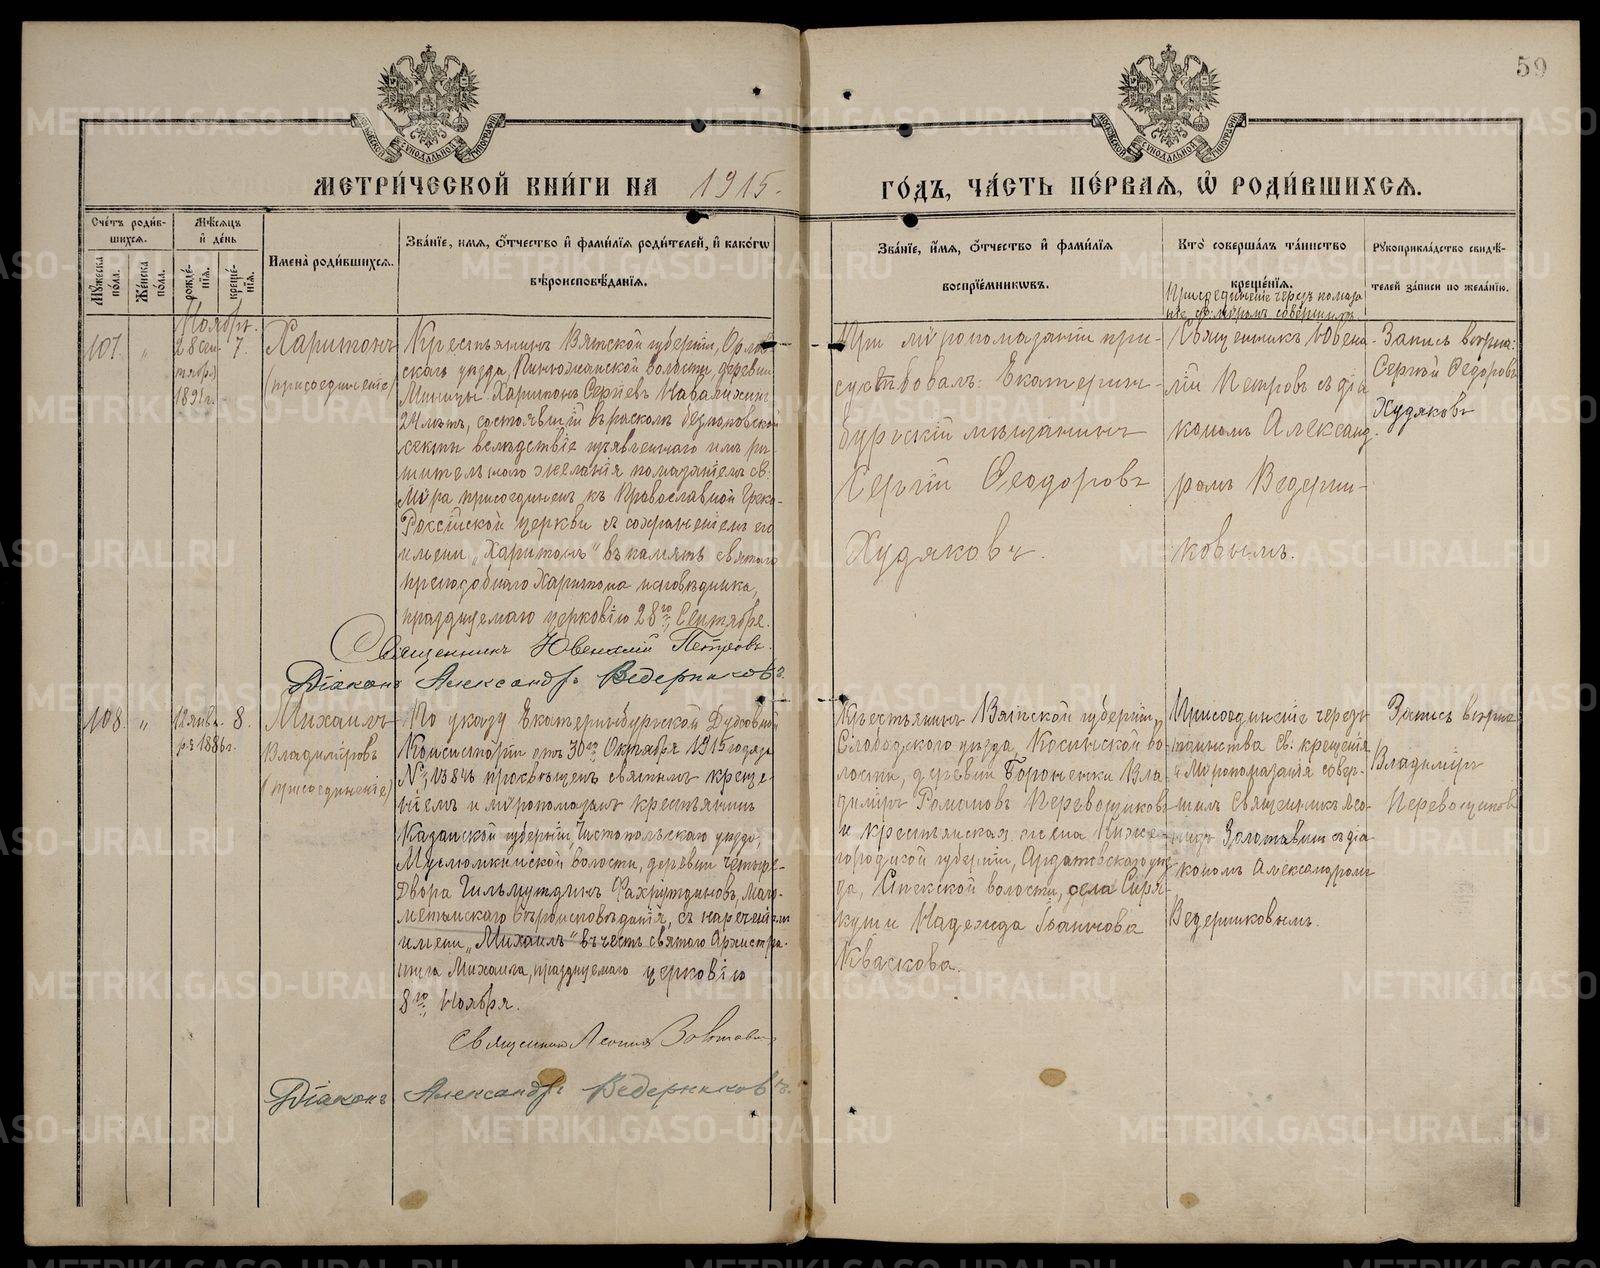 59
МЕТРИ́ЧЕСКОЙ КНИ́ГИ НА 1915.
ГО́ДЪ, ЧА́СТЬ ПЕ́РВАЯ, Ѡ҆ РОДИ́ВШИХСЯ.
Сче́тъ роди́в-
шихся.
Мꙋ́жеска по́ла.
Же́нска по́ла.
Мѣ́сяцъ
и҆ де́нь
рожде́-
нїя.
креще́-
нїя.
Имена̀ роди́вшихся.
Зва́нїе, и҆мя, ѻ҆́тчество и҆ фами́лїя роди́телей, и҆ како́гѡ
вѣроисповѣ́данїя.
Зва́нїе, и҆́мя, ѻ҆́тчество и҆ фами́лїя
воспрїе́мникѡвъ.
Кто̀ соверша́лъ та́инство
креще́нїя.
Присоединеніе чрезъ помаза
ніе св. мѵромъ совершилъ
Рꙋкоприкла́дство свидѣ́-
телей за́писи по жела́нїю.
Ноябрь.
107.
"
28 сен-
тября
1891 г.
7.
Харитонъ
(присоединеніе)
Крестьянинъ Вятской губерніи, Орлов-
скаго уѣзда, Пинюжанской волости, деревни
Харитонъ Сергіевъ Навалихинъ
24 лѣтъ, состоявшій въ расколѣ безпоповской
секты вслѣдствіе изъявленнаго имъ рѣ-
шительнаго желанія помазаніемъ св.
Мѵра присоединенъ къ Православной Греко-
Россійской церкви съ сохраненіемъ его
имени „Харитонъ" въ память святого
преподобнаго Харитона исповѣдника,
празднуемаго церковію 28го Сентября.
Священникъ Ювеналій Петровъ.
Діаконъ Александръ Ведерниковъ.
При мѵропомазаніи при-
сутствовалъ: Екатерин-
бургскій мѣщанинъ
Сергій Ѳеодоровъ
Худяковъ.
Священникъ Ювена-
лій Петровъ съ діа
кономъ Александ-
ромъ Ведерни-
ковымъ.
Запись вѣрна:
Сергѣй Ѳедоровъ
Худяковъ
108.
"
12 янва-
ря 1886 г.
8.
Михаилъ
Владиміровъ
(присоединеніе)
По указу Екатеринбургской Духовной
Консисторіи отъ 30го Октября 1915 года за
№ просвѣщенъ святымъ креще-
ніемъ и мѵропомазанъ крестьянинъ
Казанской губерніи, Чистопольскаго уѣзда,
Муслюмкинской волости, деревни Четыре-
Двора Гильмутдинъ Фахрутдиновъ, Маго-
метанскаго вѣроисповѣданія, съ нареченіемъ
имени „Михаилъ" въ честь святого Архистра-
тига Михаила, празднуемаго церковію
8го Ноября.
Священникъ Леонидъ Золотавинъ
Діаконъ Александръ Ведерниковъ.
Крестьянинъ Вятской губерніи,
Слободского уѣзда, Косинской во-
лости, деревни Вла-
диміръ Романовъ Перевощиковъ
и крестьянская жена Ниже-
городской губерніи, Ардатовскаго уѣз
да, волости, села
Надежда Іванова
Кваскова.
Присоединеніе чрезъ
таинства св. крещенія
и Мѵропомазанія совер-
шилъ Священникъ Лео-
нидъ Золотавинъ съ діа-
кономъ Александромъ
Ведерниковымъ.
Запись вѣрна
Владиміръ
Перевощиковъ
METRIKI.GASO-URAL.RU